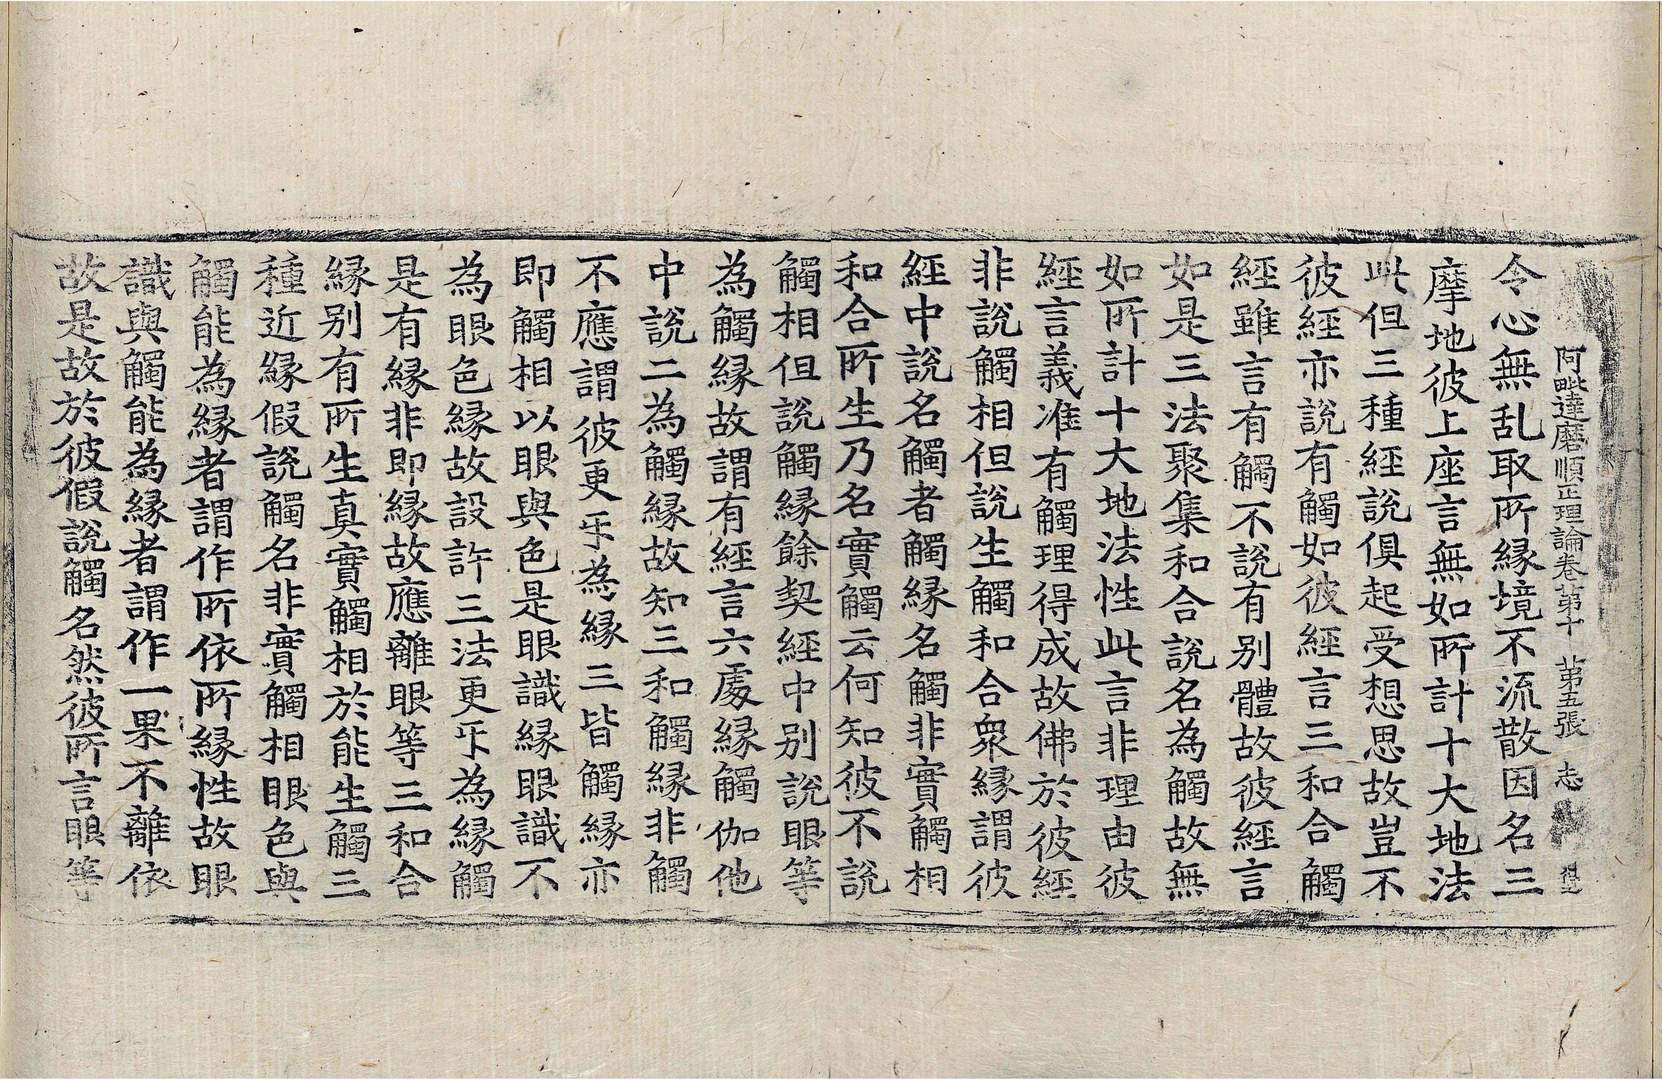 阿毗達磨順正理論卷第十　第五張　志
令心無乱取所緣境不流散因名三
摩地彼上座言無如所計十大地法
此但三種經說俱起受想思故豈不
彼經亦說有觸如彼經言三和合觸
經雖言有觸不說有別體故彼經言
如是三法聚集和合說名為觸故無
如所計十大地法性此言非理由彼
經言義准有觸理得成故佛於彼經
非說觸相但說生觸和合衆緣謂彼
經中說名觸者觸緣名觸非實觸相
和合所生乃名實觸云何知彼不說
觸相但說觸緣餘契經中別說眼等
為觸緣故謂有經言六處緣觸伽他
中說二為觸緣故知三和觸緣非觸
不應謂彼更㸦為緣三皆觸緣亦
即觸相以眼與色是眼識緣眼識不
為眼色緣故設許三法更㸦為緣觸
是有緣非即緣故應離眼等三和合
緣別有所生真實觸相於能生觸三
種近緣假說觸名非實觸相眼色與
觸能為緣者謂作所依所緣性故眼
識與觸能為緣者謂作一果不離依
故是故於彼假說觸名然彼所言眼等